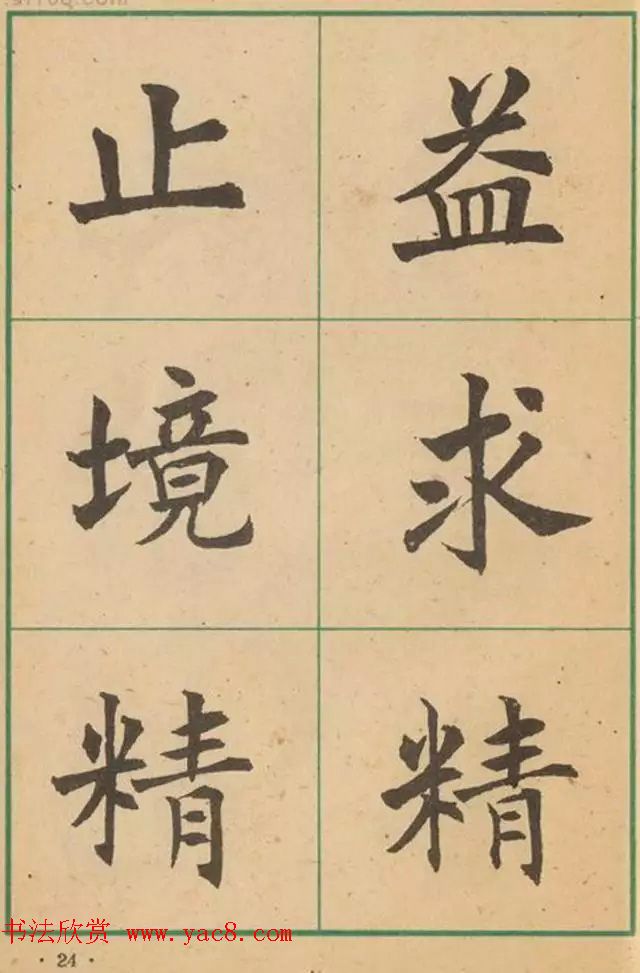 止境精
益求精
书法欣赏 www.yac8.com
· 24 ·